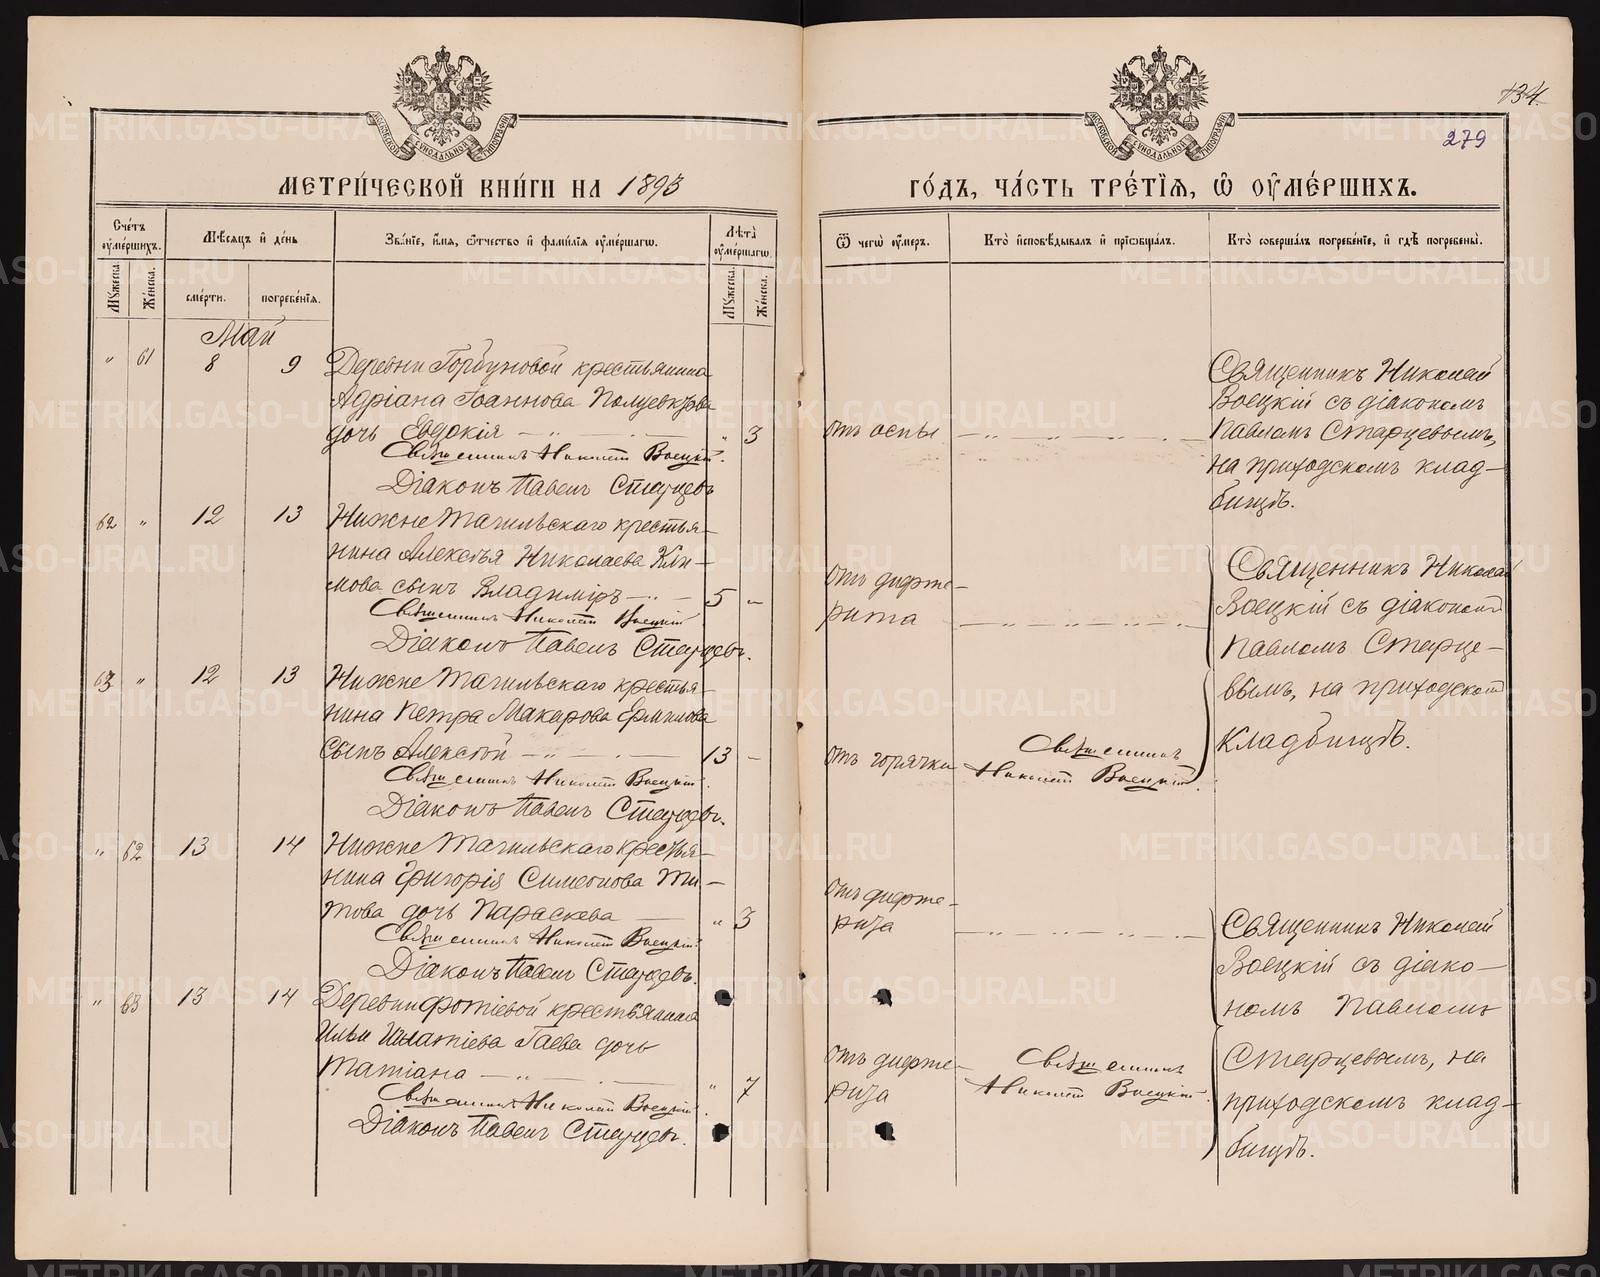 134
279
МЕТРИ́ЧЕСКОЙ КНИ́ГИ НА 1893
ГО́ДЪ, ЧА́СТЬ ТРЕ́ТІѦ, Ѿ ОУ҆МЕ́РШИХЪ.
Сче́тъ оу҆ме́ршихъ.
Мѣ́сяцъ и҆ де́нь
Зва́нїе, и҆́мя, ѻ҆́тчество и҆ фами́лїя оу҆ме́ршагѡ.
Лѣ́та оу҆ме́ршагѡ.
Ѿ чегѡ̀ оу҆́меръ.
Кто̀ и҆сповѣ́дывалъ и҆ прїѡбща́лъ.
Кто̀ соверша́лъ погребе́нїе, и҆ гдѣ̀ погребены̀.
Мꙋ́жеска.
Же́нска.
сме́рти.
погребе́нїѧ.
Мꙋ́жеска.
Же́нска.
Май
" 61 8 9 Деревни Горбуновой крестьянина
Адріана Іоаннова Полуевктова
дочь Евдокія " 3
Священникъ Николай Воецкій.
Діаконъ Павелъ Старцевъ
отъ оспы
Священникъ Николай
Воецкій съ діакономъ
Павломъ Старцевымъ,
на приходскомъ клад-
бищѣ.
62 " 12 13 Нижне Тагильскаго крестья-
нина Алексѣя Николаева Кли-
мова сынъ Владиміръ 5 "
Священникъ Николай Воецкій
Діаконъ Павелъ Старцевъ.
отъ дифте-
рита
Священникъ Николай
Воецкій съ діакономъ
Павломъ Старце-
вымъ, на приходскомъ
кладбищѣ.
63 " 12 13 Нижне Тагильскаго крестья-
нина Петра Макарова Ермилова
сынъ Алексѣй 13 -
Священникъ Николай Воецкій
Діаконъ Павелъ Старцевъ.
отъ горячки
Священникъ
Николай Воецкій.
" 62 13 14 Нижне Тагильскаго крестья-
нина Григорія Симеонова Ти-
това дочь Параскева " 3
Священникъ Николай Воецкій
Діаконъ Павелъ Старцевъ.
отъ дифте-
рита
Священникъ Николай
Воецкій съ діако-
номъ Павломъ
Старцевымъ, на
приходскомъ клад-
бищѣ.
" 63 13 14 Деревни Фотіевой крестьянина
Ильи Игнатіева Гаева дочь
Татіана " 7
Священникъ Николай Воецкій.
Діаконъ Павелъ Старцевъ.
отъ дифте-
рита
Священникъ
Николай Воецкій.
METRIKI.GASO-URAL.RU